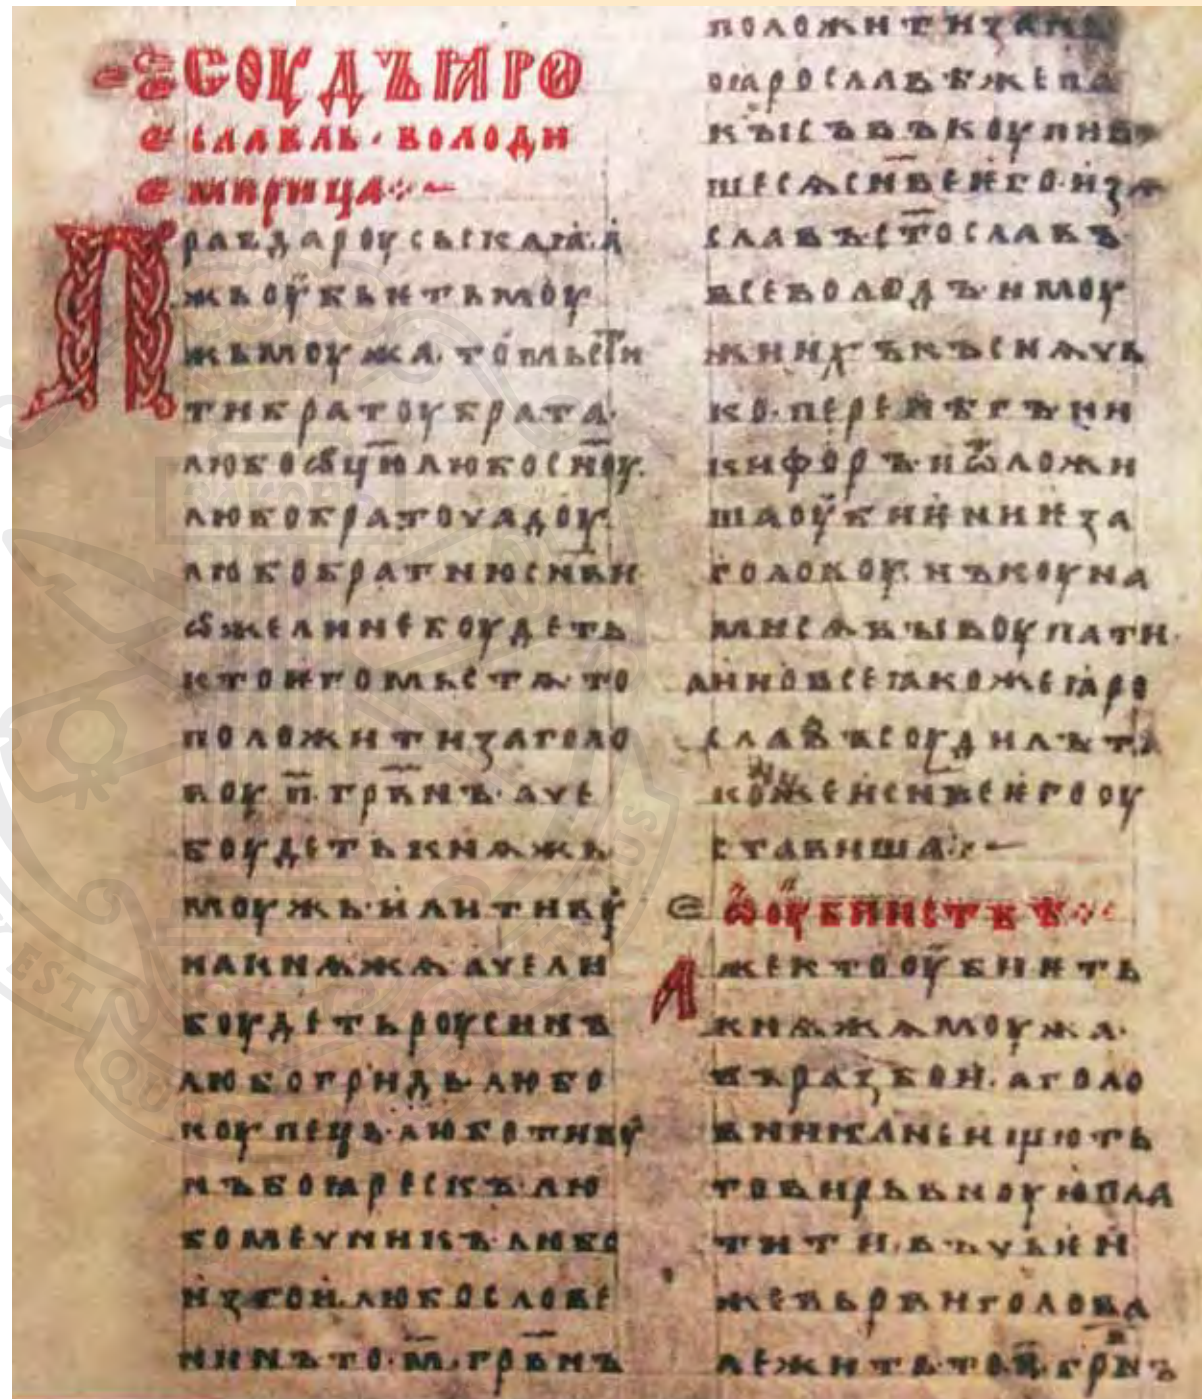 СОУДЪ ꙖРО
СЛАВЛЬ · ВОЛОДИ
МИРИЦА ·:·~
ПРАВДА РОУСЬСКАꙖ · А
ЖЬ ОУБЬИТЬ МОУ
ЖЬ МОУЖА · ТО МЬСТИ
ТИ БРАТОУ БРАТА ·
ЛЮБО ѾЦЮ ЛЮБО СН҃ОУ ·
ЛЮБО БРАТОУАДОУ ·
ЛЮБО БРАТНЮ СН҃ВИ
ѾЖЕЛИ НЕ БОУДЕТЬ
КТО ѤГО МЬСТѦ · ТО
ПОЛОЖИТИ ЗА ГОЛО
ВОУ · П҃ · ГРВ҃НЪ · АЧЕ
БОУДЕТЬ КНѦЖЬ
МОУЖЬ · ИЛИ ТИВОУ
НА КНѦЖѦ · АЧЕ ЛИ
БОУДЕТЬ РОУСИНЪ
ЛЮБО ГРИДЬ · ЛЮБО
КОУПЕЦЬ · ЛЮБО ТИВОУ
НЪ БОꙖРЕСКЪ · ЛЮ
БО МЕЧНИКЪ · ЛЮБО
ИЗГОИ · ЛЮБО СЛОВЕ
НИНЪ ТО · М҃ · ГРВ҃НЪ
ПОЛОЖИТИ ЗА НЬ
ПО ꙖРОСЛАВѢ ЖЕ ПА
КЫ СЪВЪКОУПИВЪ
ШЕСѦ СН҃ВЕ ѤГО · ИЗѦ
СЛАВЪ · СТ҃ОСЛАВЪ ·
ВСЕВОЛОДЪ · И МОУ
ЖИ ИХЪ КЪСНѦЧЬ
КО · ПЕРЕНѢГЪ · НИ
КИФОРЪ · И ѾЛОЖИ
ША ОУБИѤНИѤ ЗА
ГОЛОВОУ · НЪ КОУНА
МИ СѦ ВЫКОУПАТИ ·
А ИНО ВСЕ ꙖКОЖЕ ꙖРО
СЛАВЪ СОУДИЛЪ ТА
КОЖЕ И СН҃ВЕ ѤГО ОУ
СТАВИША ·:·~
Ѿ ОУБИИСТВѢ ·:·
АЖЕ КТО ОУБИѤТЬ
КНѦЖѦ МОУЖА ·
ВЪ РАЗБОИ · А ГОЛО
ВНИКА НЕ ИЩЮТЬ
ТО ВИРЬВНОУЮ ПЛА
ТИТИ · ВЪ ЧЬѤИ
ЖЕ ВЬРВИ ГОЛОВА
ЛЕЖИТЬ · ТО · П҃ · ГРВ҃НЪ